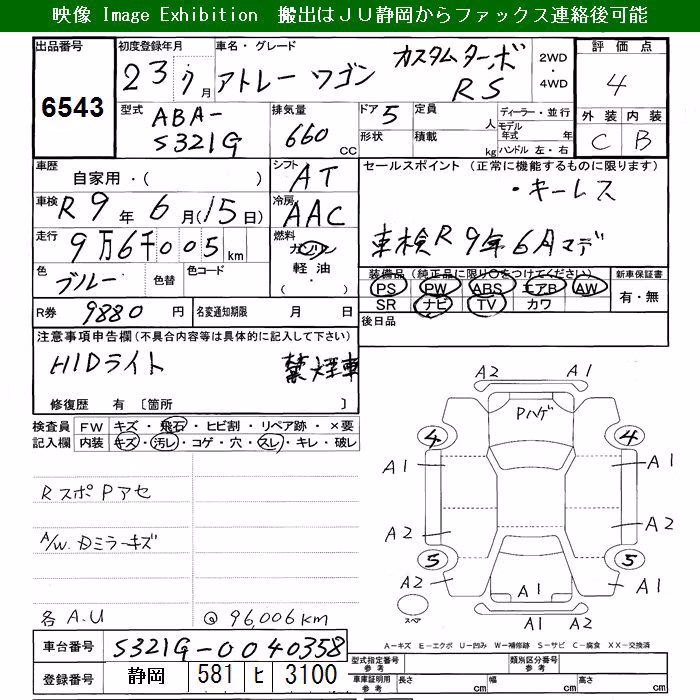 映像 Image Exhibition 搬出はJU静岡からファックス連絡後可能
出品番号
6543
初度登録年月
23 7月
車名・グレード
アトレー ワゴン カスタムターボ RS
2WD
・
4WD
評価点
4
外装 内装
C B
型式
ABA-
S321G
排気量
660 CC
ドア 5
定員 人
形状
積載 kg
ディーラー・並行
モデル年式 年
ハンドル 左・右
車歴
自家用・( )
シフト
AT
セールスポイント (正常に機能するものに限ります)
・キーレス
車検R9年6月マデ
車検
R 9年 6月(15日)
冷房
AAC
走行
9万6千005km
燃料
ガソリン
軽油
( ・ )
色
ブルー
色替
色コード
装備品 (純正品に限り○をつけてください)
PS PW ABS エアB AW
SR ナビ TV カワ
新車保証書
有・無
R券
9880円
名変通知期限 月 日
後日品
注意事項申告欄(不具合内容等は具体的に記入して下さい)
HIDライト 禁煙車
修復歴 有 〔箇所 〕
検査員記入欄
FW キズ・飛石・ヒビ割・リペア跡・×要
内装 キズ・汚レ・コゲ・穴・スレ・キレ・破レ
RスポPアセ
A/W.Dミラーキズ
各A.U
@96,006km
A2 A1
Pハゲ
4 4
A1 A1
A2 A2
5 5
A2 A1 A1
A1 A2
スペア
A-キズ E-エクボ U-凹み W-補修跡 S-サビ C-腐食 XX-交換済
車台番号
S321G-0040358
登録番号
静岡 581 ヒ 3100
型式指定番号
参考
類別区分番号
参考
車庫証明用
参考
長さ cm 幅 cm 高さ cm